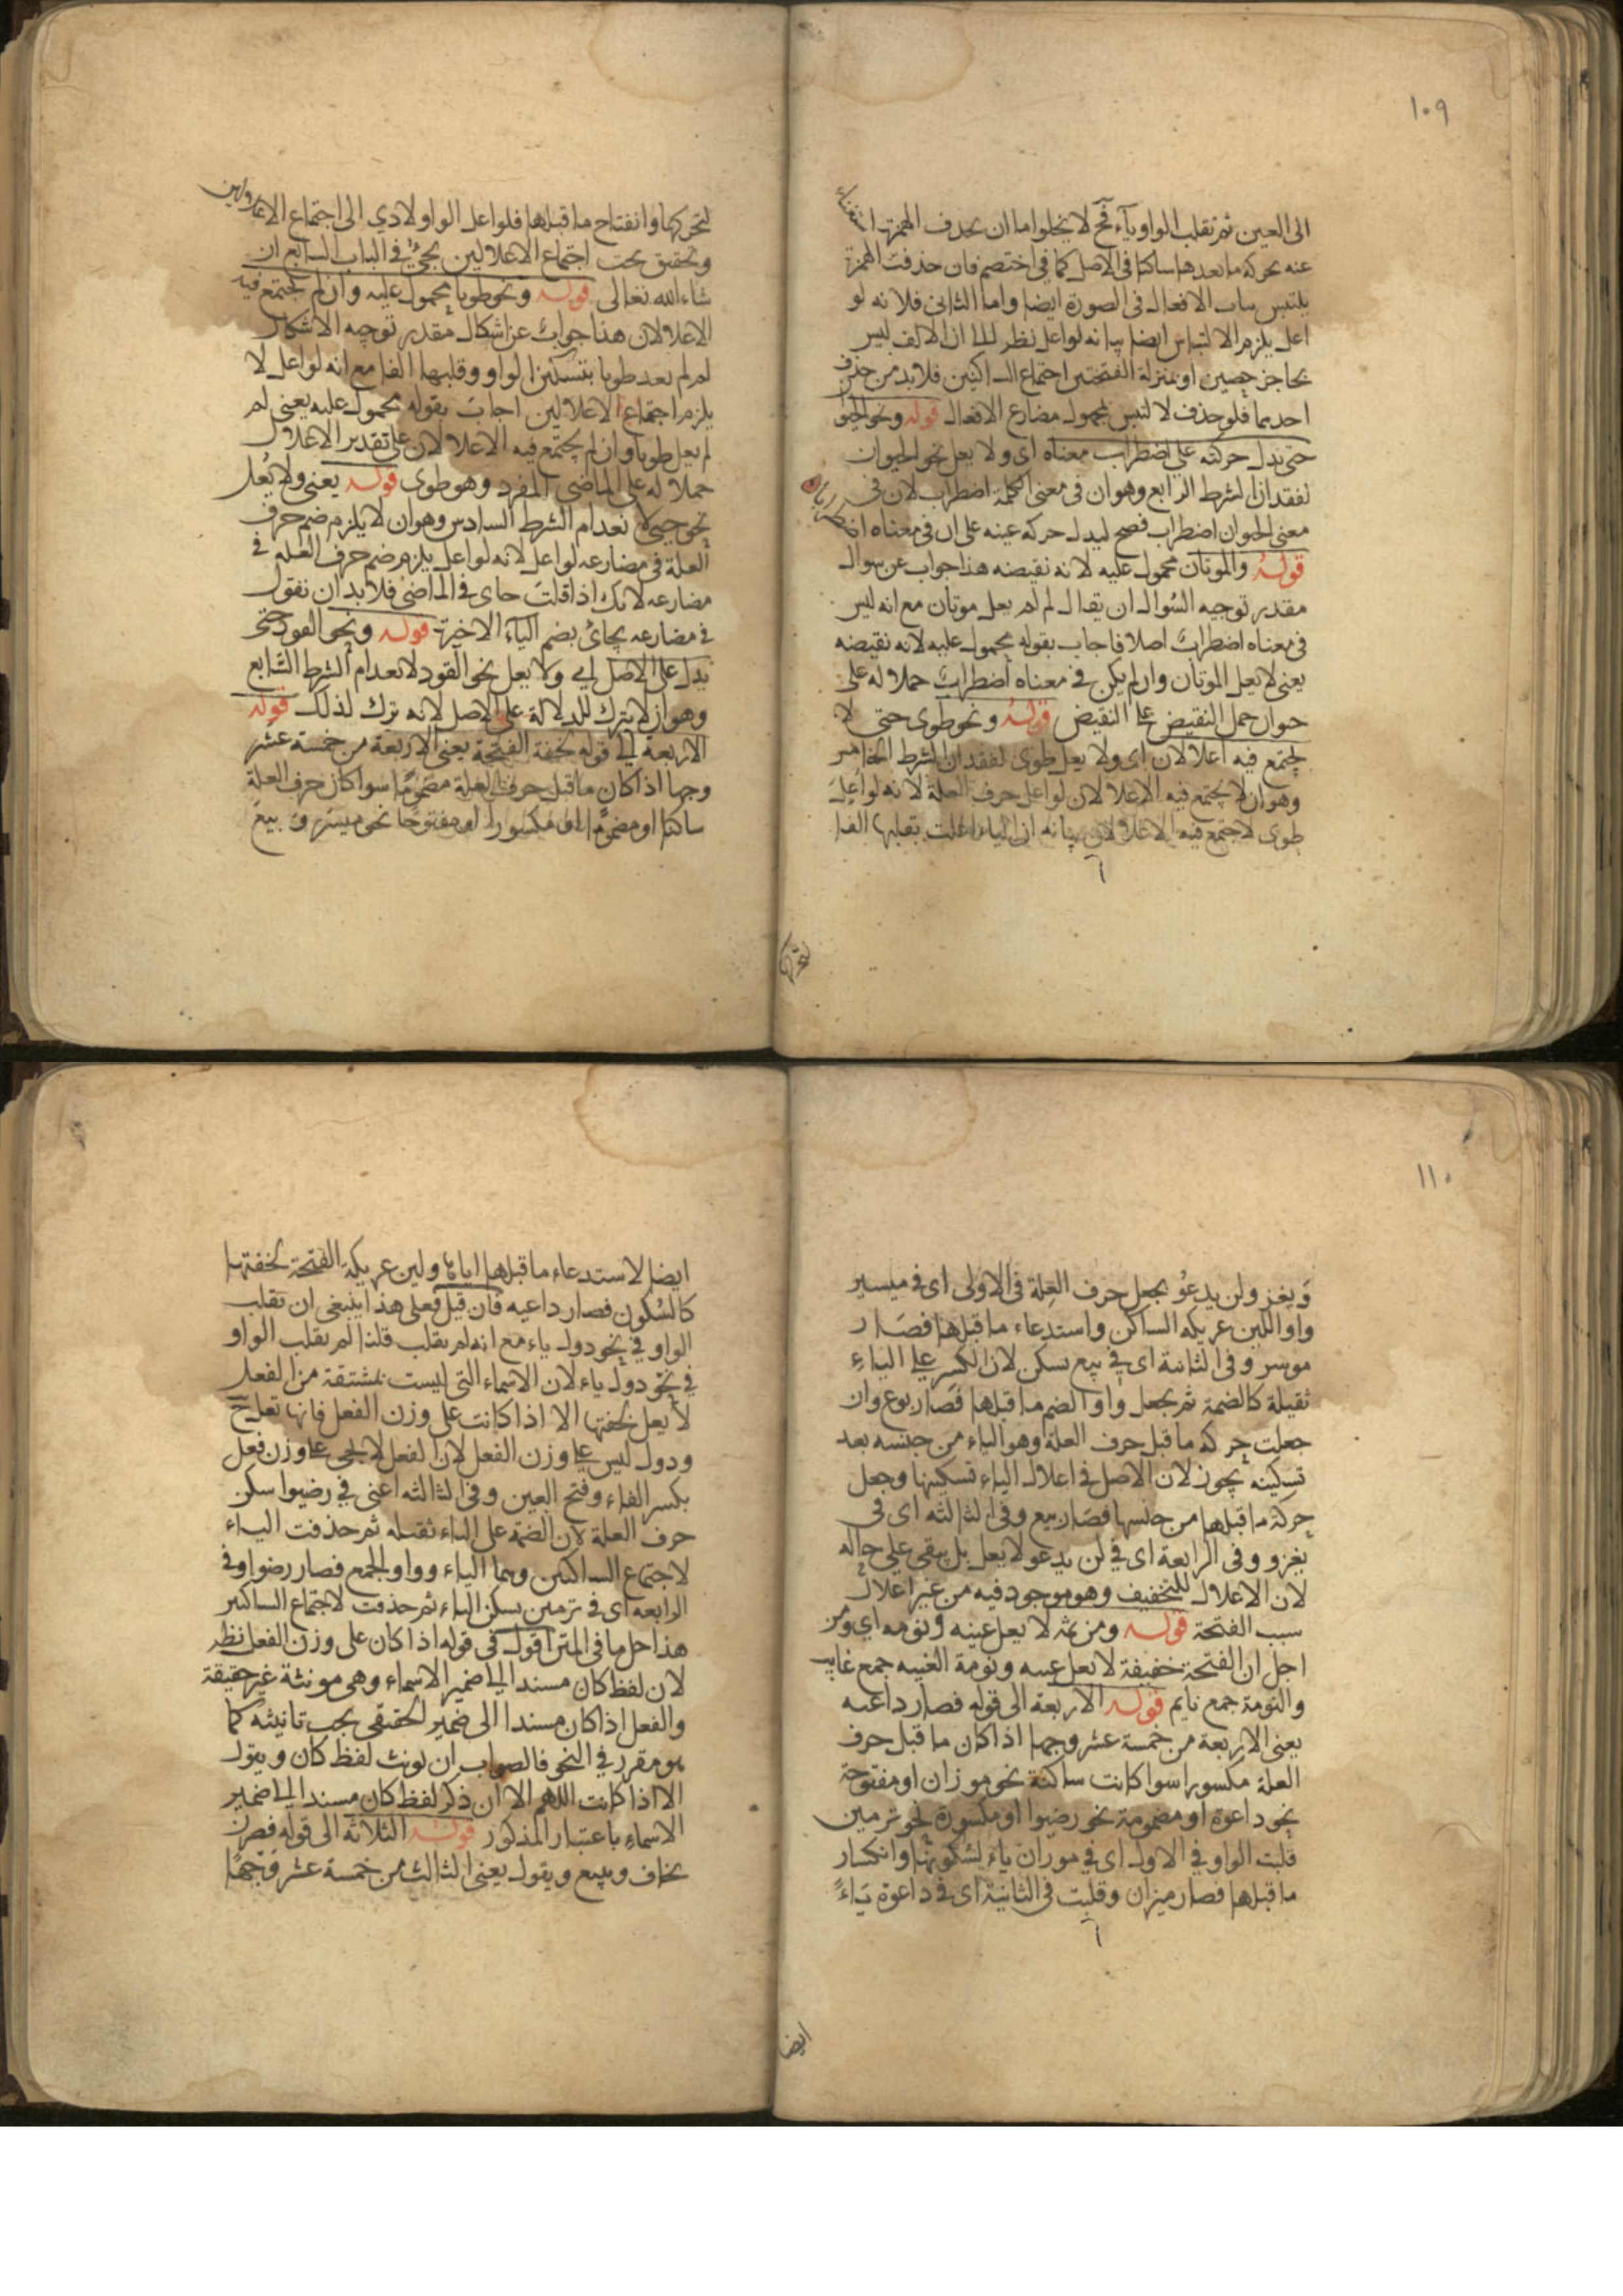 ١٠٩
الى العين ثم تقلب الواو ياء فح لا يخلوا ما ان يحذف الهمزة استغناء
عنه بحركة ما بعدها ساكنا في الاصل كما في اختصم فان حذفت الهمزة
يلتبس بباب الافعال في الصورة ايضا واما الثاني فلانه لو
اعل يلزم الالتباس ايضا بيانه لو اعل نظر الى ان الالف ليس
بحاجز حصين او بمنزلة الفتحتين اجتماع الساكنين فلا بد من حذف
احدهما فلو حذف لا لتبس بمجهول مضارع الافعال قوله ونحو الحيوان
حتى يدل حركته على اضطراب معناه اى ولا يعل نحو الحيوان
لفقدان الشرط الرابع وهو ان في معنى الكلمة اضطراب لان في
معنى الحيوان اضطراب فصح ليدل حركة عينه على ان في معناه اضطرابا
قوله والموتان محمول عليه لانه نقيضه هذا جواب عن سوال
مقدر توجيه السوال ان يقال لم لم يعل موتان مع انه ليس
في معناه اضطراب اصلا فاجاب بقوله محمول عليه لانه نقيضه
يعنى لا يعل الموتان وان لم يكن في معناه اضطراب حملا له على
حوان حمل النقيض على النقيض قوله ونحو طوى حتى لا
يجتمع فيه اعلالان اى ولا يعل طوى لفقدان الشرط الخامس
وهو ان لا يجتمع فيه الاعلالان لو اعل حرف العلة لانه لو اعل
طوى لاجتمع فيه الاعلالان بيانه ان الياء اعلت بقلبها الفا
لتحركها
لتحركها وانفتاح ما قبلها فلو اعل الواو لادى الى اجتماع الاعلالين
وتحقيق بحث اجتماع الاعلالين يجئ في الباب السابع ان
شاء الله تعالى قوله ونحو طويا محمول عليه وان لم يجتمع فيه
الاعلالان هذا جواب عن اشكال مقدر توجيه الاشكال
لم لم يعد طويا بتسكين الواو وقلبها الفا مع انه لو اعل لا
يلزم اجتماع الاعلالين اجاب بقوله محمول عليه يعنى لم
لم يعل طويا وان لم يجتمع فيه الاعلالان على تقدير الاعلال
حملا له على الماضى المفرد وهو طوى قوله يعنى ولا يعل
نحو حيى لانعدام الشرط السادس وهو ان لا يلزم ضم حرف
العلة في مضارعه لو اعل لانه لو اعل يلزم ضم حرف العلة في
مضارعه لانك اذا قلت حاى في الماضى فلا بد ان تقول
في مضارعه يحاى بضم الياء الاخيرة قوله ونحو القود حتى
يدل على الاصل اي ولا يعل نحو القود لانعدام الشرط السابع
وهو ان لا يترك للدلالة على الاصل لانه ترك لذلك قوله
الاربعة الى قوله لخفة الفتحة يعنى الاربعة من خمسة عشر
وجها اذا كان ما قبل حرف العلة مضموما سوا كان حرف العلة
ساكنا او مضموما او مكسورا او مفتوحا نحو ميسر وبيع
١١٠
ويغز ولن يدعو يجعل حرف العلة في الاولى اى في ميسير
واو اللين عريكة الساكن واستدعاء ما قبلها فصار
موسر وفي الثانية اى في بيع يسكن لان الكسر على الياء
ثقيلة كالضمة ثم يجعل واوا لضم ما قبلها فصار بوع وان
جعلت حركة ما قبل حرف العلة وهو الياء من جنسه بعد
تسكينه يجوز لان الاصل في اعلال الياء تسكينها وجعل
حركة ما قبلها من جنسها فصار بيع وفي الثالثه اى في
يغزو وفي الرابعة اى في لن يدعو لا يعل بل يبقى على حاله
لان الاعلال للتخفيف وهو موجود فيه من غير اعلال
سبب الفتحة قوله ومن ثمه لا يعل عينه ونومه اي ومن
اجل ان الفتحة خفيفة لا يعل عينه ونومة الغيبه جمع غايب
والنومة جمع نايم قوله الاربعة الى قوله فصار داعيه
يعنى الاربعة من خمسة عشر وجها اذا كان ما قبل حرف
العلة مكسورا سوا كانت ساكنة نحو موزان او مفتوحة
نحو داعوة او مضمومة نحو رضيوا او مكسورة نحو ترميين
قلبت الواو في الاول اى في موزان ياء لسكونها وانكسار
ما قبلها فصار ميزان وقلبت في الثانية اى في داعوة ياء
ايضا
ايضا لاستدعاء ما قبلها اياها ولين عريكة الفتحة لخفتها
كالسكون فصار داعيه فان قيل فعلى هذا ينبغى ان تقلب
الواو في نحو دول ياء مع انه لم يقلب قلنا لم يقلب الواو
في نحو دول ياء لان الاسماء التى ليست بمشتقة من الفعل
لا يعل لخفتها الا اذا كانت على وزن الفعل فانها تعل ح
ودول ليس على وزن الفعل لان الفعل لا يجى على وزن فعل
بكسر الفاء وفتح العين وفي الثالثه اعنى في رضيوا سكن
حرف العلة لان الضمة على الياء ثقيله ثم حذفت الياء
لاجتماع الساكنين وهما الياء وواو الجمع فصار رضوا وفي
الرابعه اى في ترميين يسكن الياء ثم حذفت لاجتماع الساكنين
هذا حل ما في المتن اقول في قوله اذا كان على وزن الفعل نظر
لان لفظ كان مسندا الى ضمير الاسماء وهى مونثة غير حقيقة
والفعل اذا كان مسندا الى ضمير الحقيقى يجب تانيثه كما
هو مقرر في النحو فالصواب ان يونث لفظ كان ويقول
الا اذا كانت اللهم الا ان ذكر لفظ كان مسندا الى ضمير
الاسماء باعتبار المذكور قوله الثلاثه الى قوله فصرن
يخاف ويبيع ويقول يعنى الثالث من خمسة عشر وجها